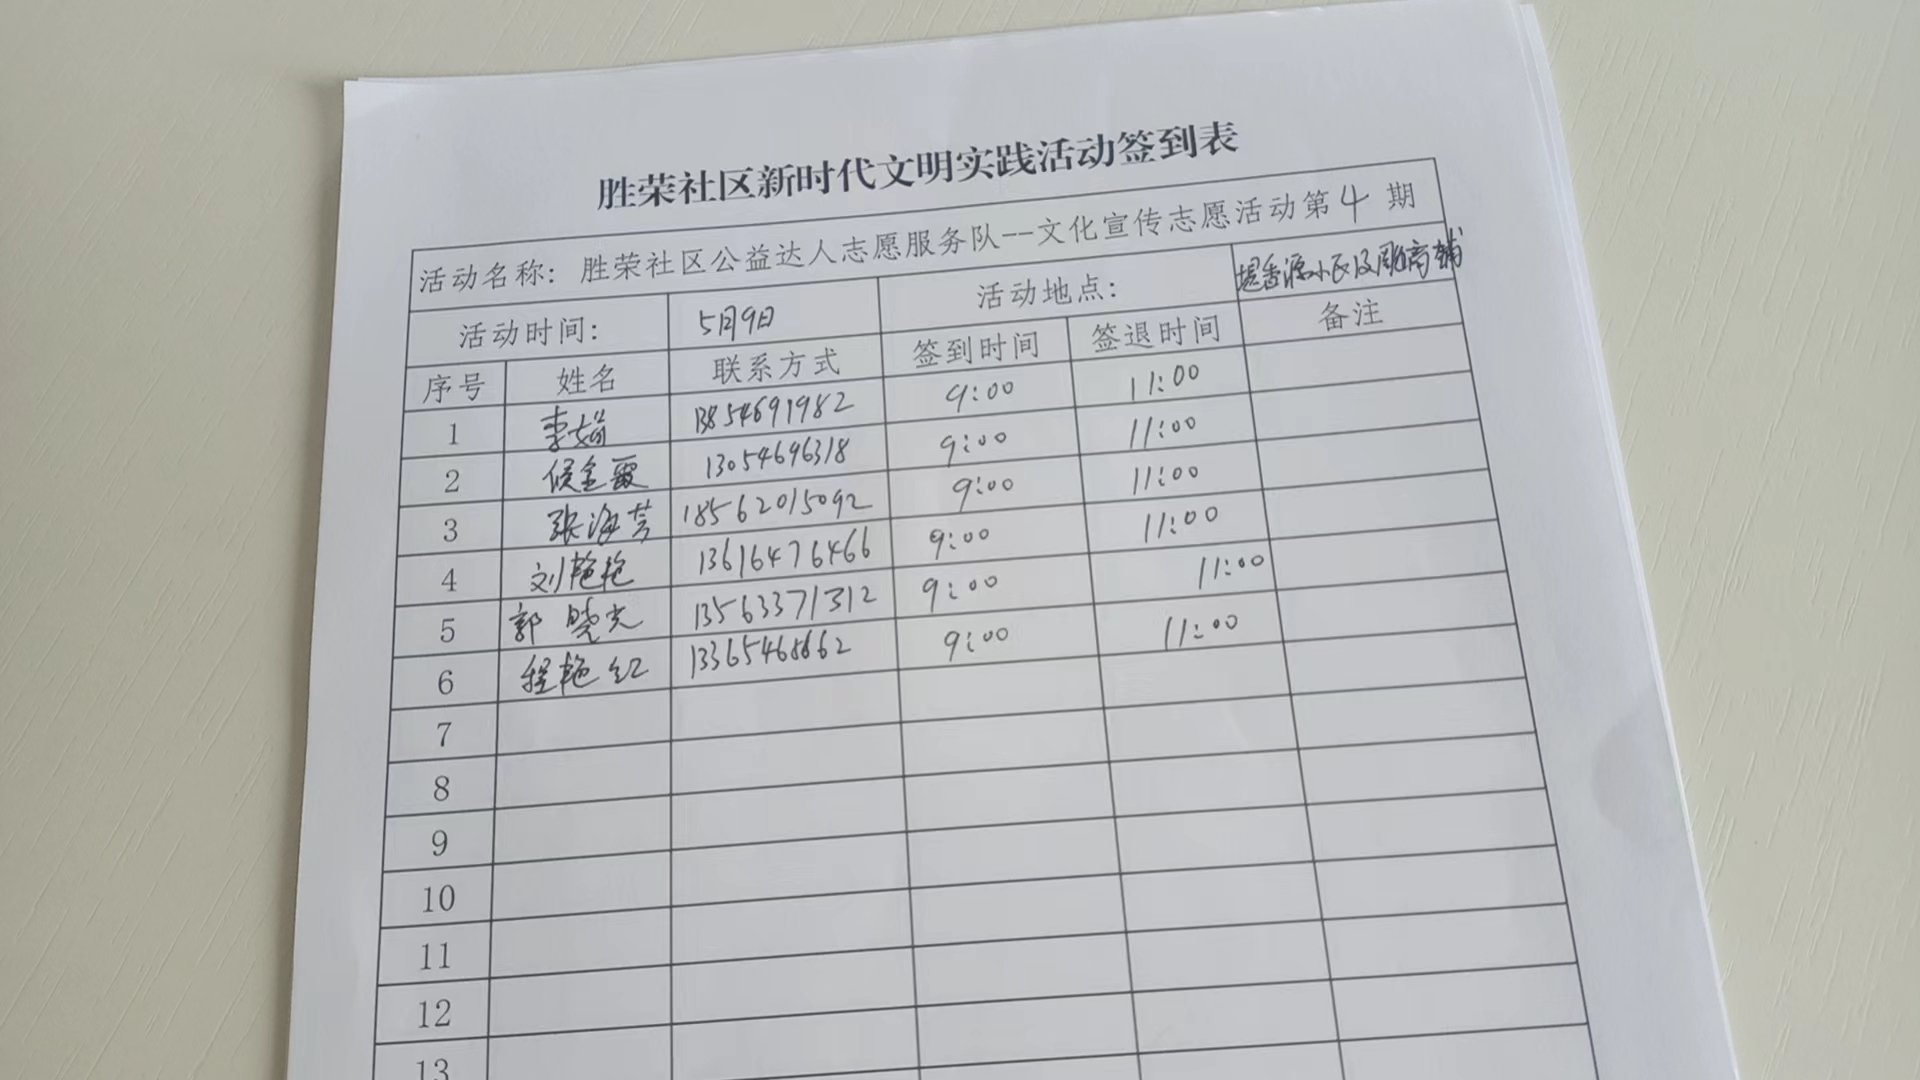 胜荣社区新时代文明实践活动签到表
活动名称：胜荣社区公益达人志愿服务队--文化宣传志愿活动第4期
活动时间： 5月9日 活动地点： 香源小区及周边商铺
序号 姓名 联系方式 签到时间 签退时间 备注
1 李娟 13854691982 9:00 11:00
2 侯金霞 13054696318 9:00 11:00
3 张海芳 18562015092 9:00 11:00
4 刘艳艳 13616476466 9:00 11:00
5 郭晓光 13563371312 9:00 11:00
6 程艳红 9:00 11:00
7
8
9
10
11
12
13